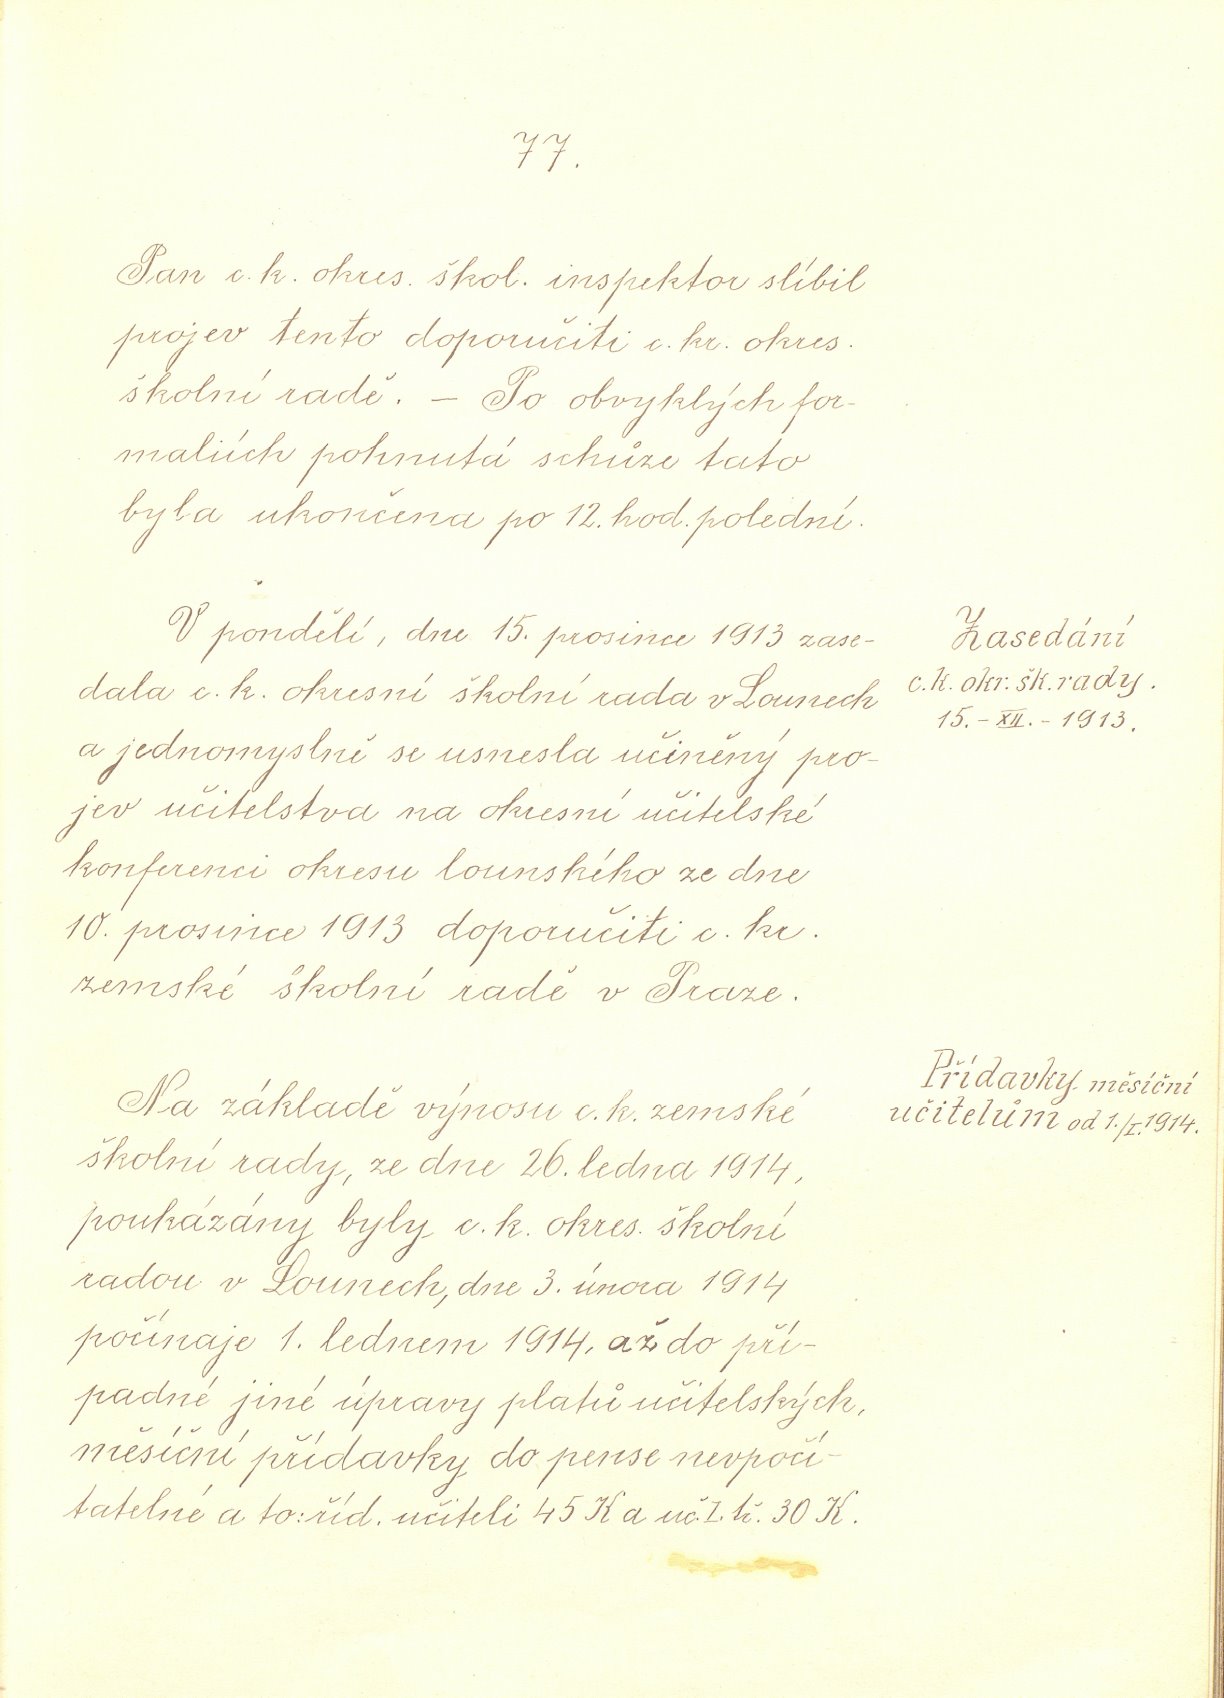 77.
Pan c. k. okres. škol. inspektor slíbil
projev tento doporučiti c. kr. okres.
školní radě. — Po obvyklých for-
maliích pohnutá schůze tato
byla ukončena po 12. hod. polední.
V pondělí, dne 15. prosince 1913 zase-
dala c. k. okresní školní rada v Lounech
a jednomyslně se usnesla učiněný pro-
jev učitelstva na okresní učitelské
konferenci okresu lounského ze dne
10. prosince 1913 doporučiti c. kr.
zemské školní radě v Praze.
Zasedání
c. k. okr. šk. rady.
15. - XII. - 1913.
Na základě výnosu c. k. zemské
školní rady, ze dne 26. ledna 1914,
poukázány byly c. k. okres. školní
radou v Lounech, dne 3. února 1914
počínaje 1. lednem 1914, až do pří-
padné jiné úpravy platů učitelských,
měsíční přídavky do pense nevpočí-
tatelné a to: říd. učiteli 45 K a uč. I. tř. 30 K.
Přídavky měsíční
učitelům od 1./I. 1914.